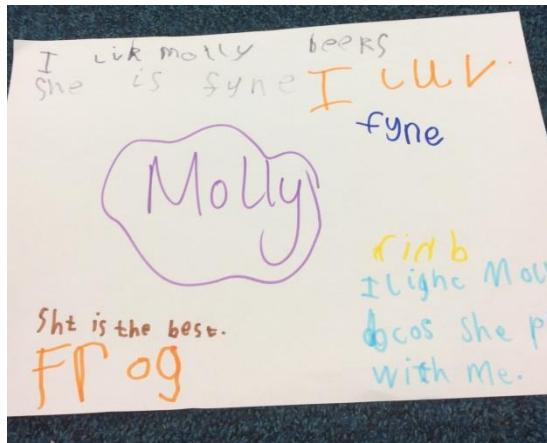 I lik molly beeks
She is fyne
I luv.
fyne
Molly
I lighc Mol
bcos She p
with me.
Sht is the best.
Frog